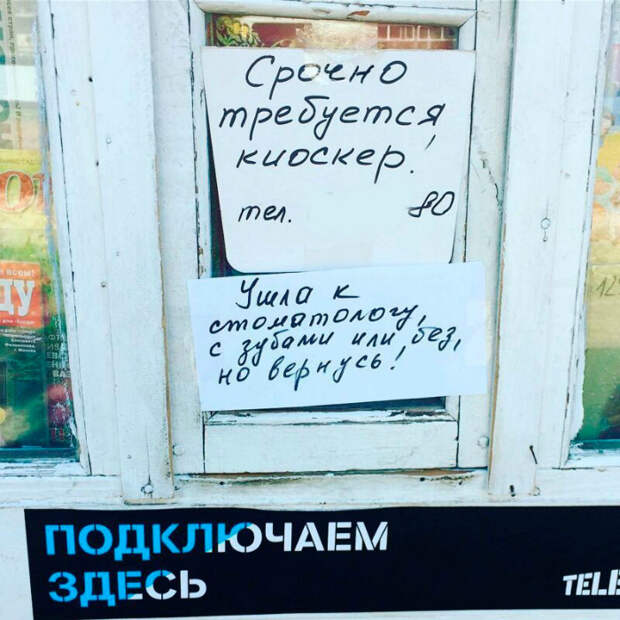 Срочно
требуется
киоскер!
тел. 80
Ушла к
стоматологу,
с зубами или без,
но вернусь!
ПОДКЛЮЧАЕМ
ЗДЕСЬ